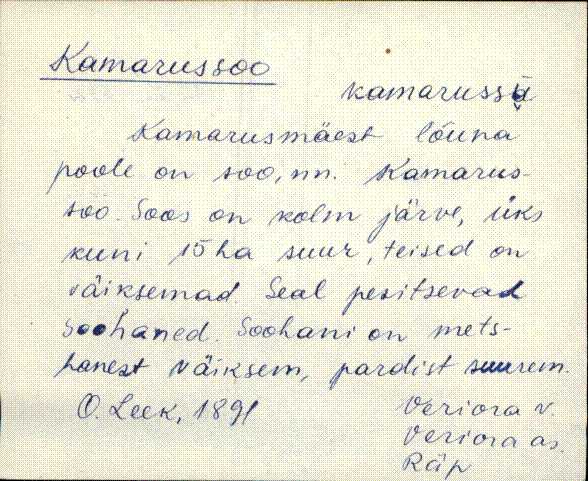 Kamarussoo
kamarussu̬
Kamarusmäest lõuna
poole on soo, nn. Kamarus-
soo. Soos on kolm järve, üks
kuni 15 ha suur, teised on
väiksemad Seal pesitsevad
soohaned. Soohani on mets-
hanest väiksem, pardist suurem.
O. Leek, 1891 Veriora v.
Veriora as.
Räp